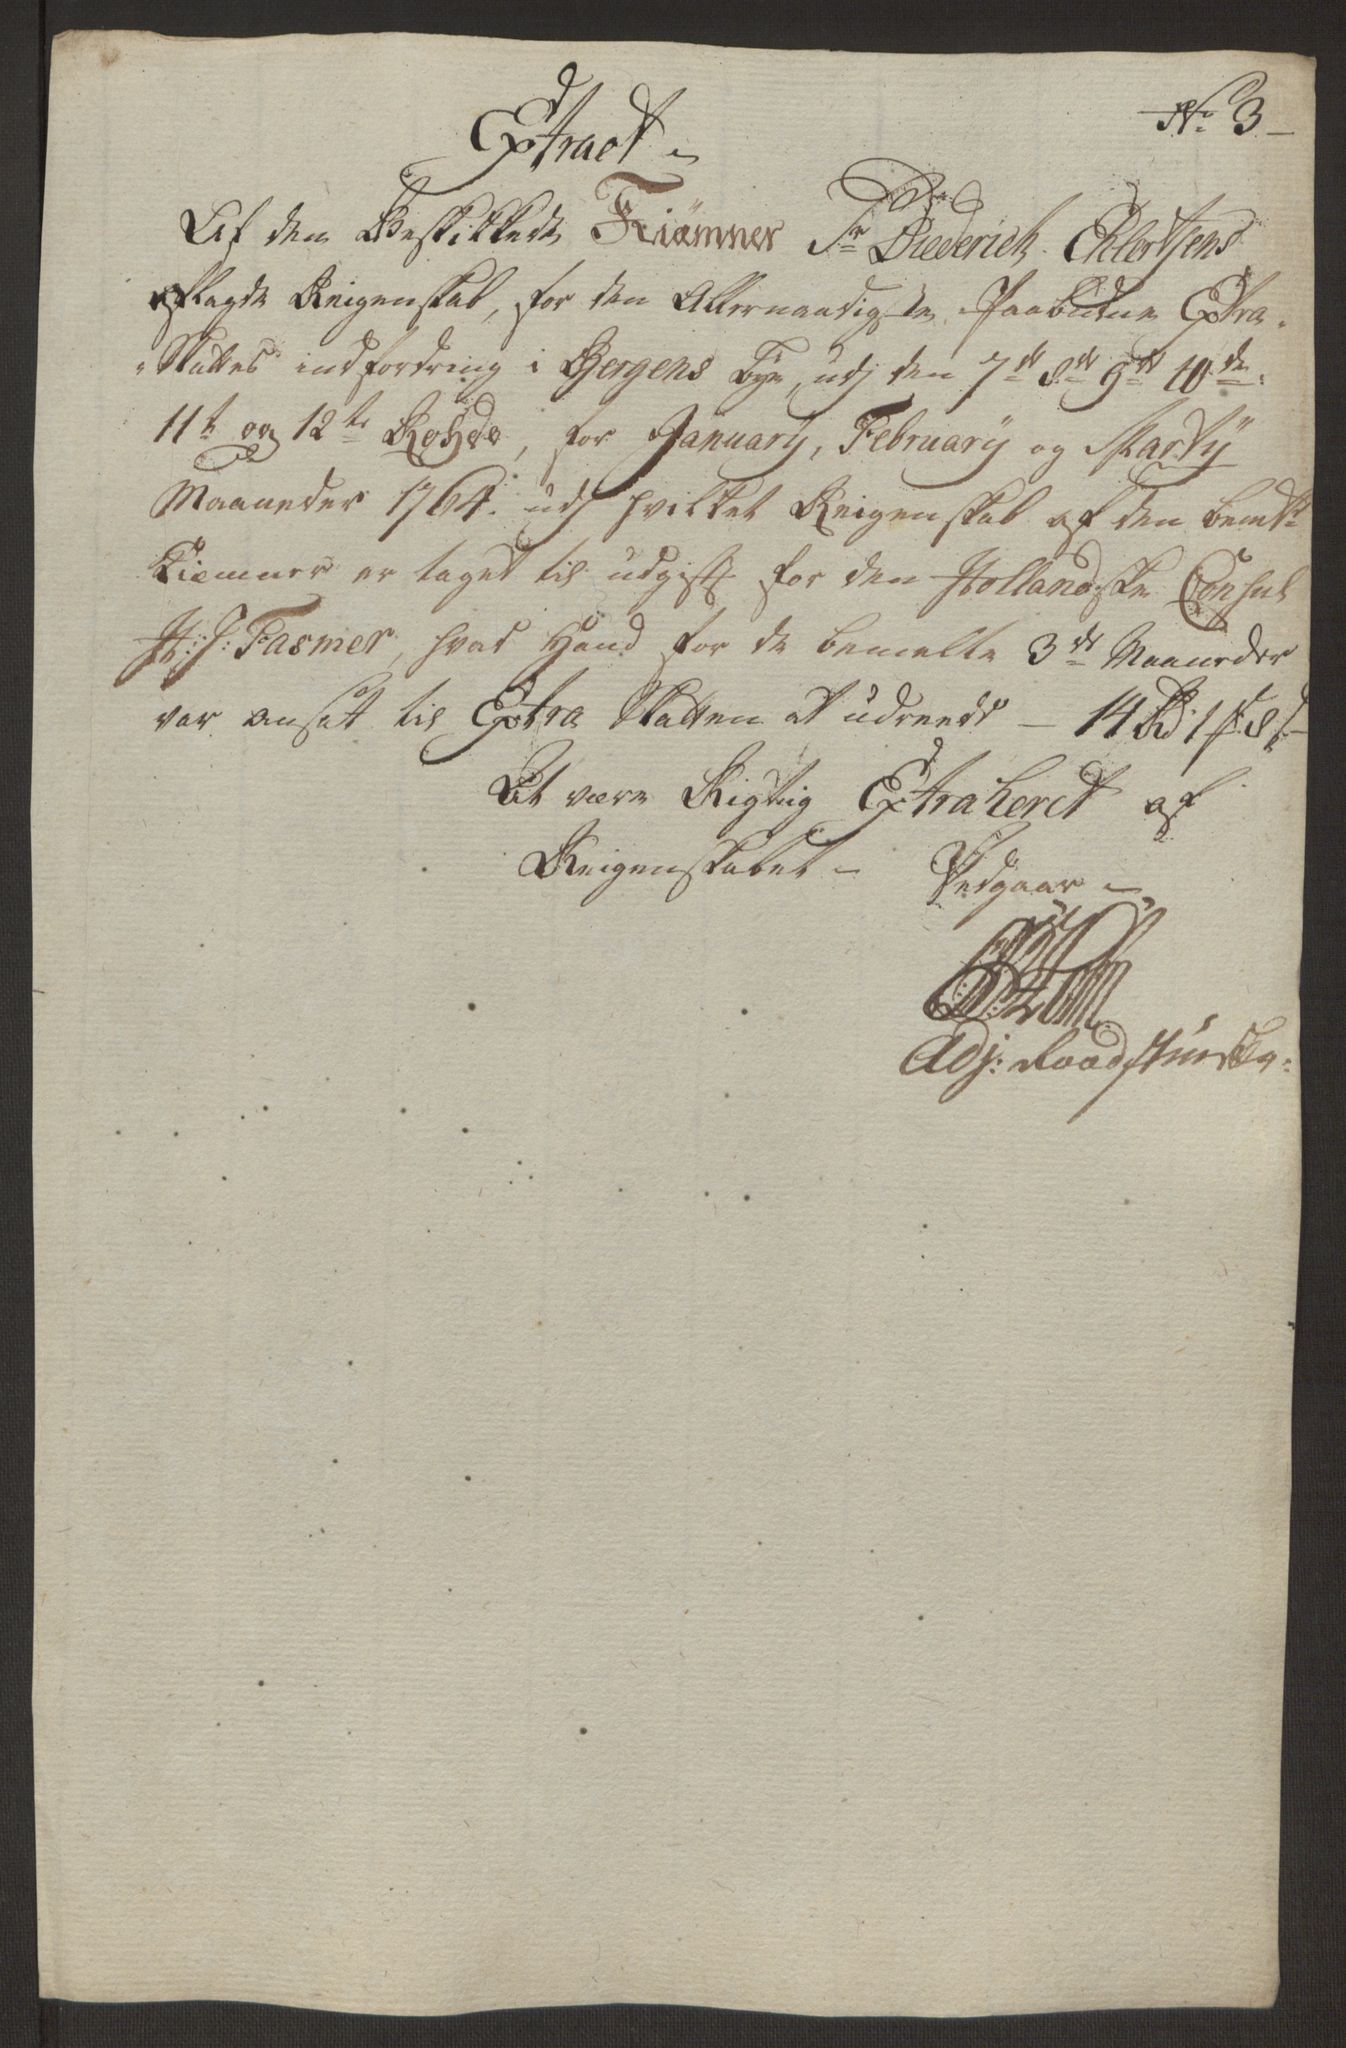 No 3
Extract
Af den Beskikkede Kiæmner Sr Diederich Ehlertsens
aflagde Reigenskab, for den Allernaadigste Paabudne Extra
Skattes indfordring i Bergens Bye, udj den 7de 8de 9de 10de
11te og 12te Rohde, for January, February og Marty
Maaneder 1764. udj hvilket Reigenskab af den bemte
Kiemner er taget til udgift for den Hollandske Consul
H: J: Fasmer, hvad Hand for de bemelte 3de Maaneder
var ansatt til Extra Skatten at udreede – 14 Rd 1 # 8 s
At være Rigtig Extraheret af
Reigenskabet – Vedgaar –
Adj: Raadstueskr: